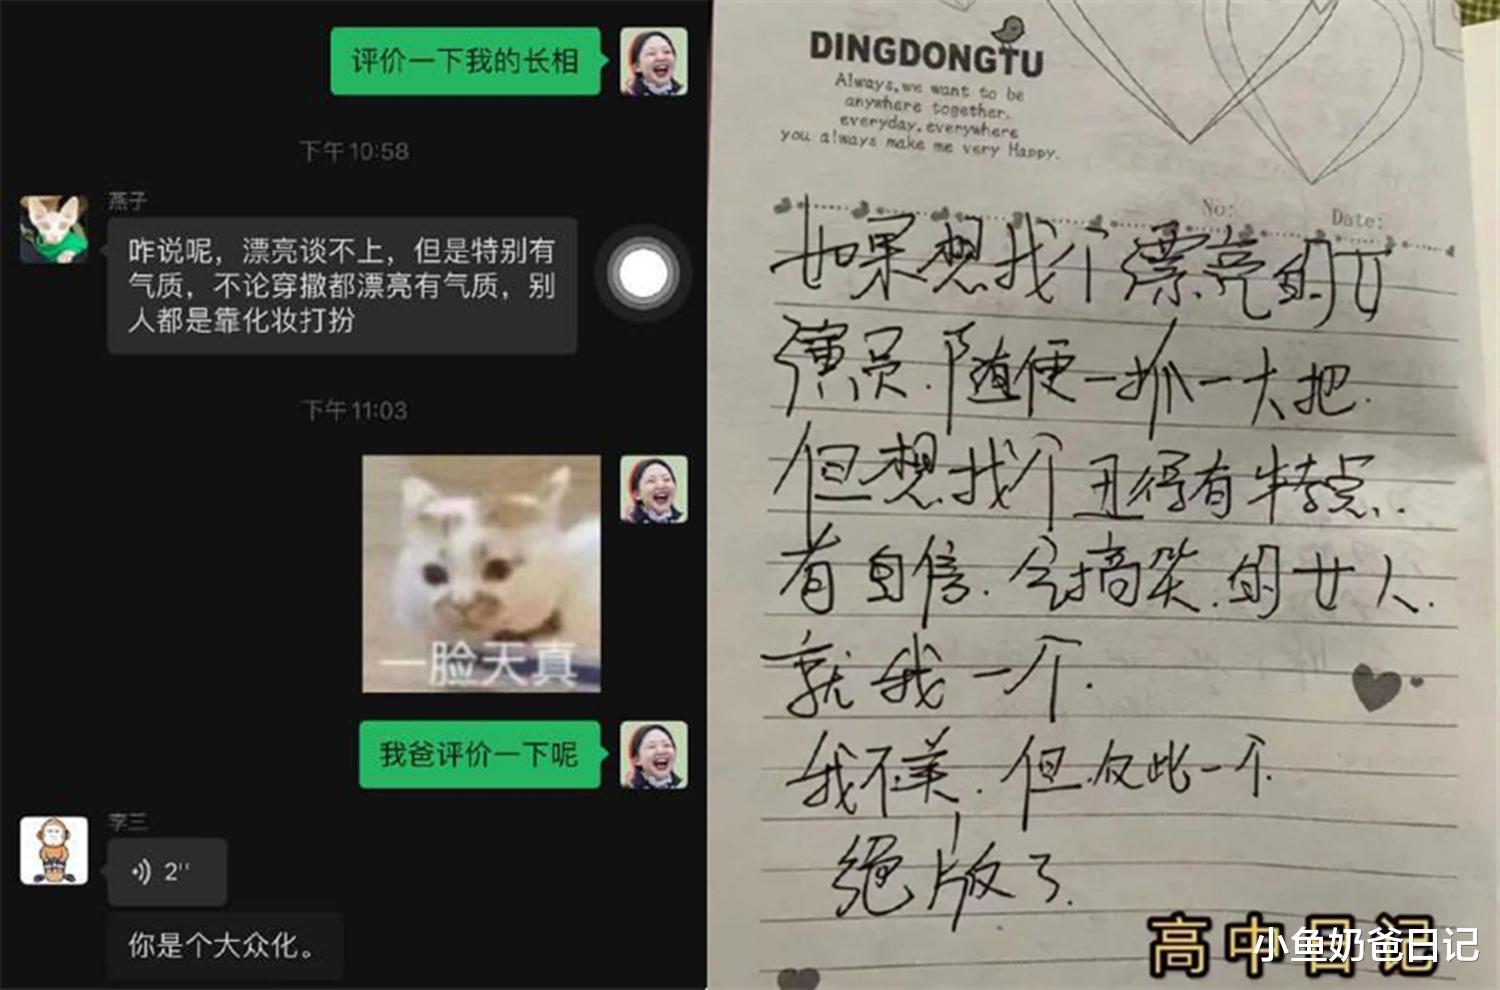 评价一下我的长相
下午10:58
燕子
咋说呢，漂亮谈不上，但是特别有
气质，不论穿撒都漂亮有气质，别
人都是靠化妆打扮
下午11:03
一脸天真
我爸评价一下呢
李三
2"
你是个大众化。
DINGDONGTU
Always, we want to be
anywhere together.
everyday, everywhere
you always make me very Happy.
No:
Date:
如果想找个漂亮的女
演员.随便一抓一大把.
但想找个丑得有特点..
有自信.会搞笑.的女人.
就我一个.
我不美.但仅此一个.
绝版了.
高中日记
小鱼奶爸日记